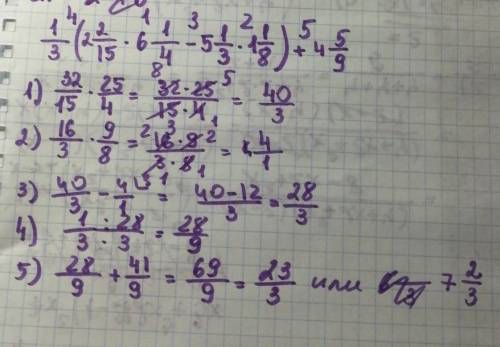 1/3 (2 2/15 · 6 1/4 - 5 1/3 · 1 1/8) + 4 5/9
1) 32/15 · 25/4 = 32 · 25/15 · 4 = 40/3
2) 16/3 · 9/8 = 16 · 9/3 · 8 = 4/1
3) 40/3 - 4/1 = 40-12/3 = 28/3
4) 1 · 28/3 · 3 = 28/9
5) 28/9 + 41/9 = 69/9 = 23/3 или 7 2/3